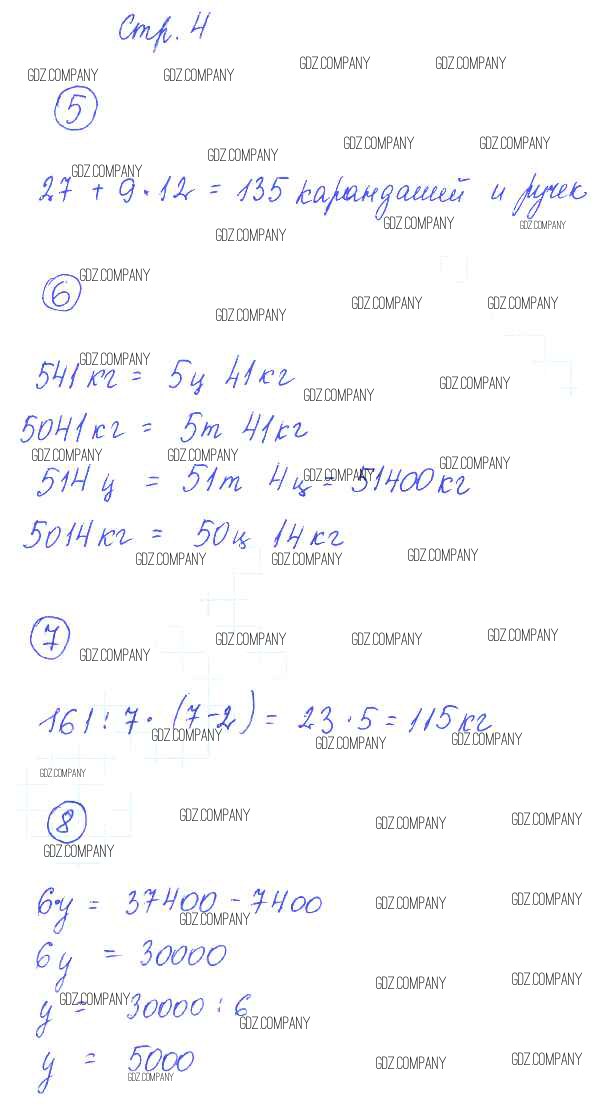 Стр. 4
GDZ.COMPANY GDZ.COMPANY GDZ.COMPANY GDZ.COMPANY
5
GDZ.COMPANY GDZ.COMPANY GDZ.COMPANY GDZ.COMPANY
27 + 9 · 12 = 135 карандашей и ручек
GDZ.COMPANY GDZ.COMPANY GDZ.COMPANY
6 GDZ.COMPANY
GDZ.COMPANY GDZ.COMPANY GDZ.COMPANY
GDZ.COMPANY
541 кг = 5ц 41 кг
GDZ.COMPANY GDZ.COMPANY
5041 кг = 5т 41 кг
GDZ.COMPANY GDZ.COMPANY GDZ.COMPANY GDZ.COMPANY
514 ц = 51т 4ц = 51400 кг
5014 кг = 50ц 14 кг
GDZ.COMPANY GDZ.COMPANY GDZ.COMPANY
7
GDZ.COMPANY GDZ.COMPANY GDZ.COMPANY GDZ.COMPANY
161 : 7 · (7-2) = 23 · 5 = 115 кг
GDZ.COMPANY GDZ.COMPANY GDZ.COMPANY
GDZ.COMPANY
8 GDZ.COMPANY GDZ.COMPANY GDZ.COMPANY
GDZ.COMPANY
6·y = 37400 - 7400
GDZ.COMPANY GDZ.COMPANY GDZ.COMPANY
6y = 30000
GDZ.COMPANY GDZ.COMPANY
y = 30000 : 6
GDZ.COMPANY GDZ.COMPANY
y = 5000
GDZ.COMPANY GDZ.COMPANY GDZ.COMPANY